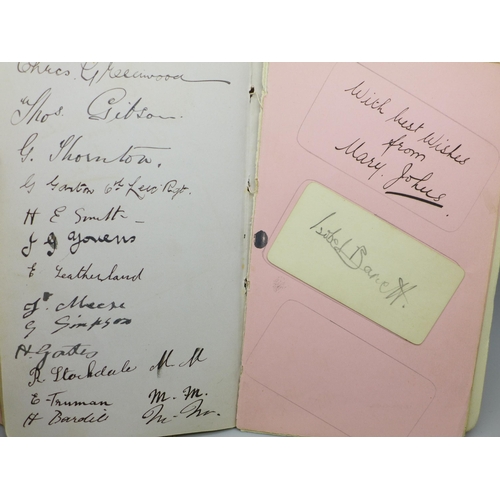 Chres. Greenwood
Thos. Gibson.
G. Thornton.
G Ganton 6th Regt.
H E Smith
J G Govens
E Leatherland
J. Meese
G Simpson
H. Gates
R Stockdale M M
E. Truman M. M.
H Bardill M. M.
With best Wishes
from
Mary. Johns.
Isobel Barnett.